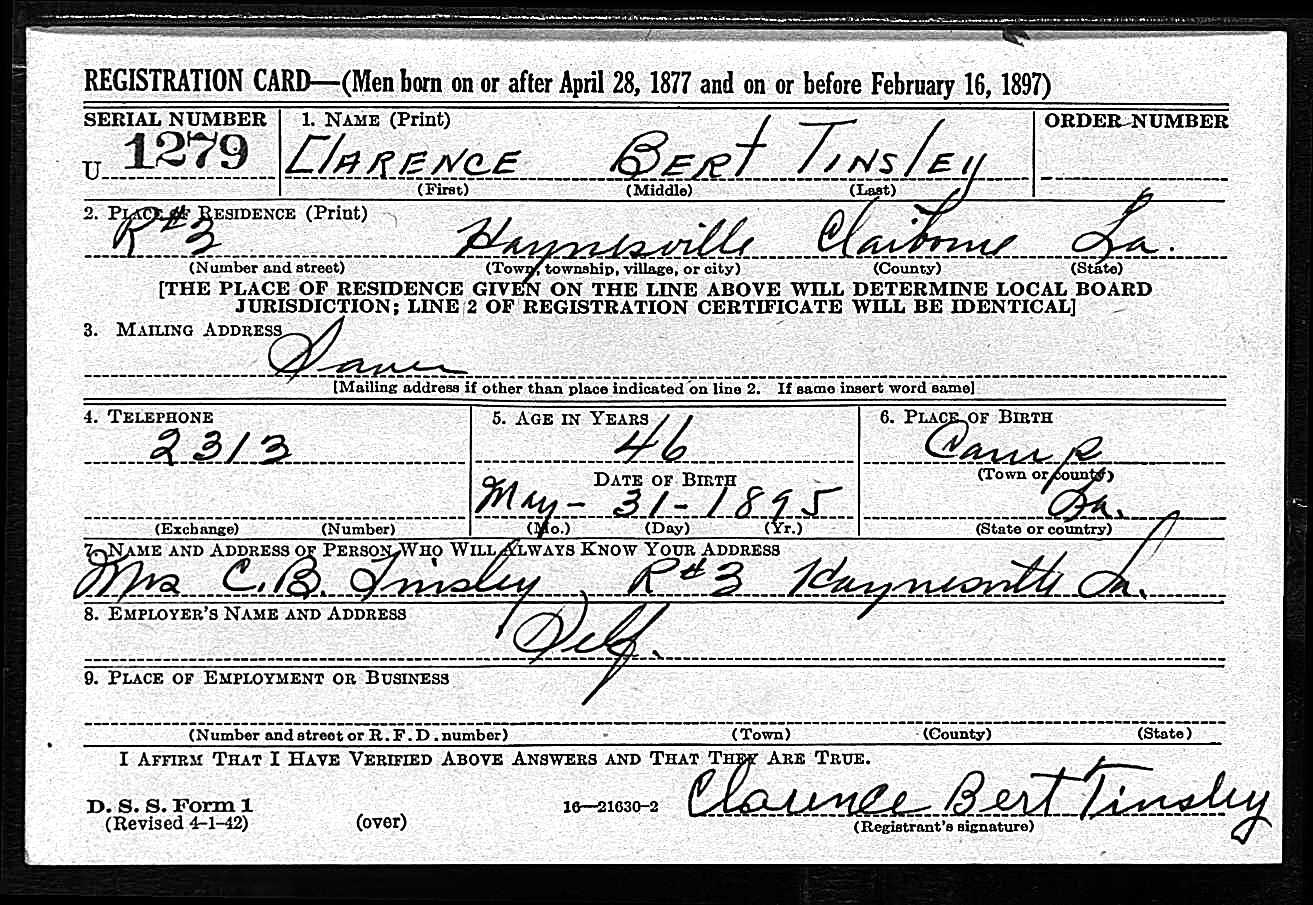 REGISTRATION CARD—(Men born on or after April 28, 1877 and on or before February 16, 1897)
SERIAL NUMBER 1. NAME (Print) ORDER NUMBER
U 1279 CLARENCE BERT TINSLEY
(First) (Middle) (Last)
2. PLACE OF RESIDENCE (Print)
R#3 Haynesville Claiborne La.
(Number and street) (Town, township, village, or city) (County) (State)
[THE PLACE OF RESIDENCE GIVEN ON THE LINE ABOVE WILL DETERMINE LOCAL BOARD
JURISDICTION; LINE 2 OF REGISTRATION CERTIFICATE WILL BE IDENTICAL]
3. MAILING ADDRESS
Same
[Mailing address if other than place indicated on line 2. If same insert word same]
4. TELEPHONE 5. AGE IN YEARS 6. PLACE OF BIRTH
2313 46 Camp
DATE OF BIRTH (Town or county)
May - 31 - 1895 La.
(Exchange) (Number) (Mo.) (Day) (Yr.) (State or country)
7. NAME AND ADDRESS OF PERSON WHO WILL ALWAYS KNOW YOUR ADDRESS
Mrs C.B. Tinsley, R#3 Haynesville La.
8. EMPLOYER'S NAME AND ADDRESS
Self.
9. PLACE OF EMPLOYMENT OR BUSINESS
(Number and street or R.F.D. number) (Town) (County) (State)
I AFFIRM THAT I HAVE VERIFIED ABOVE ANSWERS AND THAT THEY ARE TRUE.
D. S. S. Form 1 16—21630-2 Clarence Bert Tinsley
(Revised 4-1-42) (over) (Registrant's signature)